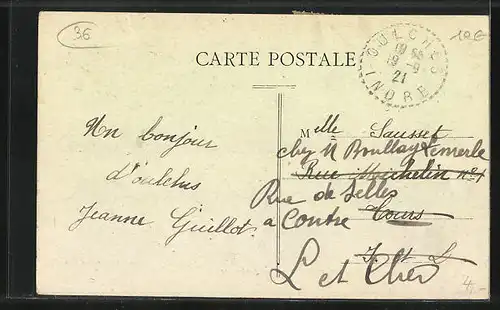 36
10€
CARTE POSTALE
OULCHES
19 -9
21
INDRE
Un bonjour
d'oulches
Jeanne Guillot
Mlle Sausset
chez M Boullay Lemerle
Rue Michelin n° 1
Rue de Selles
a Contre Tours
I. et L
L et Cher
4,-